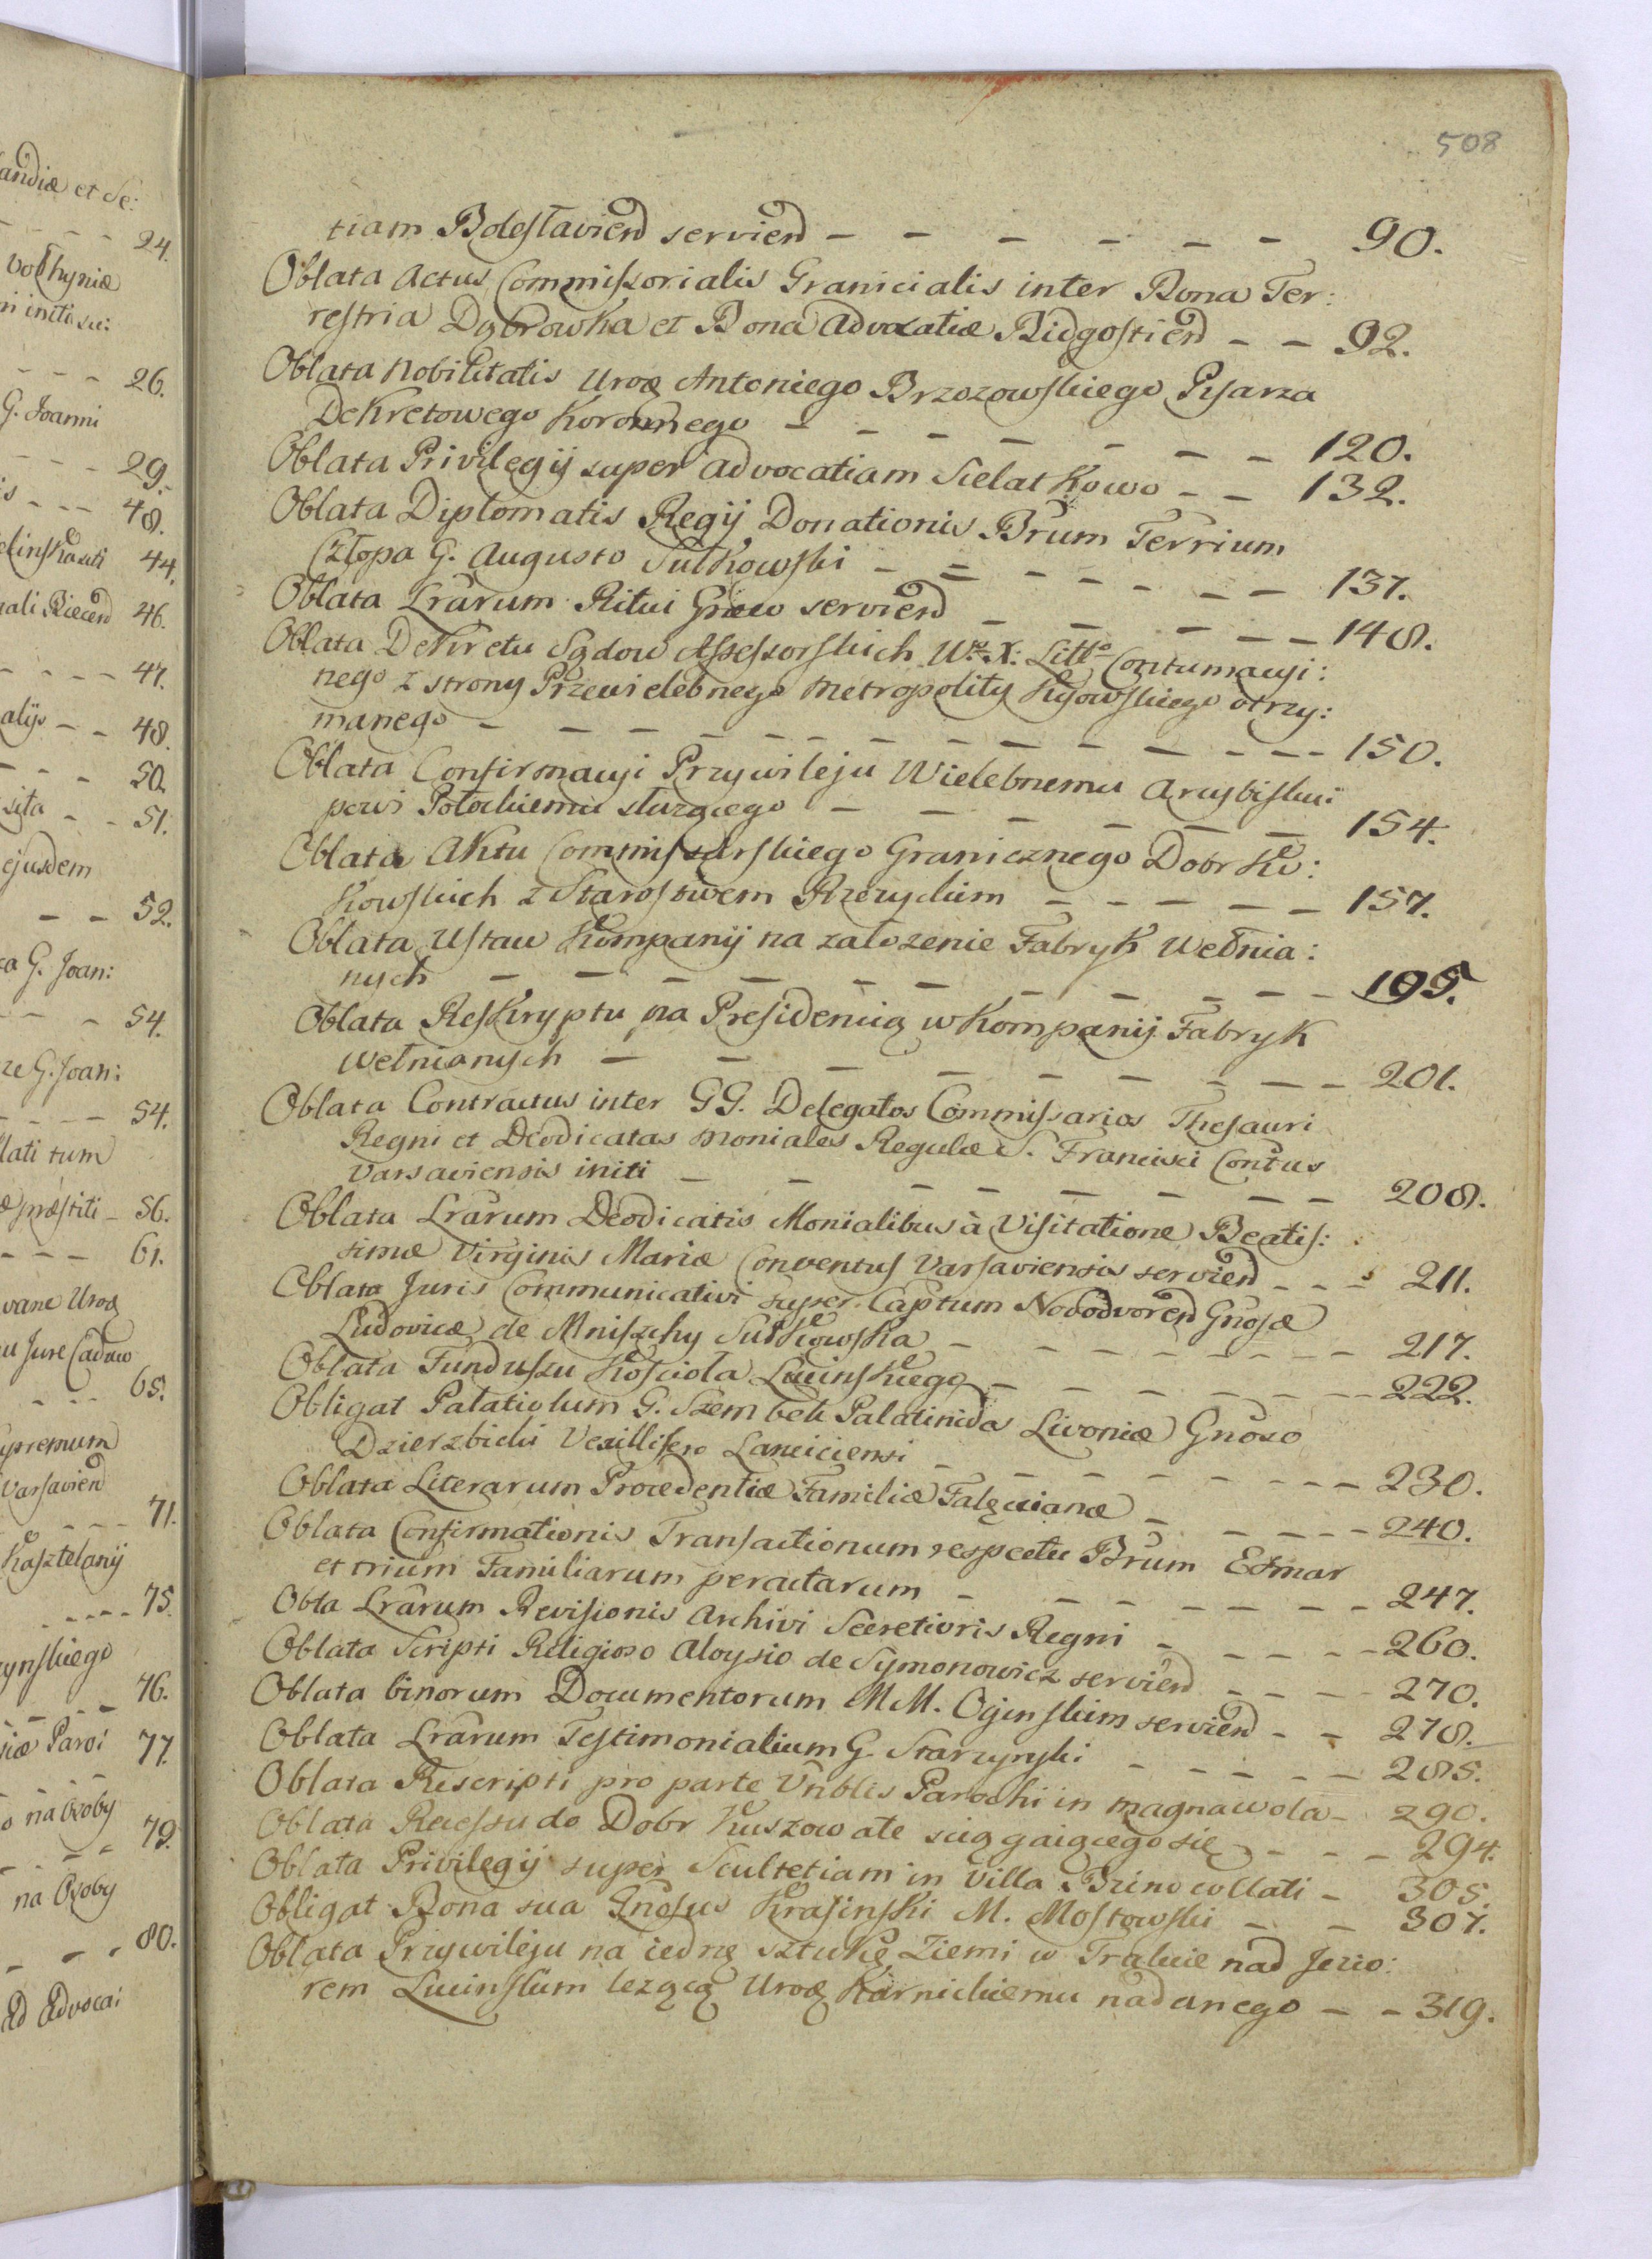 andiæ et Se:
24.
Volhyniæ
26.
G. Joanni
29.
48.
44.
46.
47.
alijs - - 48.
50.
51.
ejusdem
- - 52.
G. Joan:
54.
G. Joan:
54.
lati tum
56.
61.
vane Uroą
u Jure Caduco
65.
upremum
Varsavien
71.
Kasztelanij
75.
zynskiego
76.
77.
o na Osoby
79.
na Osoby
80.
Ad Advoca:
508
tiam Boleslavien servien - - - - - - 90.
Oblata Actus Commissorialis Granicialis inter Bona Ter:
restria Dąbrowka et Bona Advocatiæ Bidgostien - - 92.
Oblata Nobilitatis Uroą Antoniego Brzozowskiego Pisarza
Dekretowego Koronnego - - - - - - - 120.
Oblata Privilegij super advocatiam Sielatkowo - - 132.
Oblata Diplomatis Regij Donationis Brum Terrium
Człopa G. Augusto Sułkowski - - - - - - - 137.
Oblata Lrarum Ritui Græco servien - - - - - 148.
Oblata Dekretu Sądow Assessorskich W. X: Litt° Contumacyi:
nego z strony Przewielebnego Metropolity Kijowskiego otrzy:
manego - - - - - - - - - - - 150.
Oblata Confirmacyi Przywileju Wielebnemu Arcybisku:
powi Połockiemu służącego - - - - - - 154.
Oblata Aktu Commissarskiego Granicznego Dobr Kw:
kowskich z Starostwem Rzeczyckim - - - - - 157.
Oblata Ustaw Kompanij na założenie Fabryk Wełnia:
nych - - - - - - - - - - 195.
Oblata Reskryptu na Presidencią w Kompanij Fabryk
wełnianych - - - - - - - - - 201.
Oblata Contractus inter GG. Delegatos Commissarios Thesauri
Regni et Deodicatas Moniales Regulæ S. Francisci Contus
Varsaviensis initi - - - - - - - - 208.
Oblata Lrarum Deodicatis Monialibus à Visitatione Beatis:
simæ Virginis Mariæ Conventus Varsaviensis servien - - - 211.
Oblata Juris Communicativi super Captum Novodvoren Gnosæ
Ludovicæ de Mniszchy Sułkowska - - - - - - - 217.
Oblata Funduszu Kościoła Lucinskiego - - - - - - - 222.
Obligat Palatiolum G. Szembek Palatinida Livoniæ Gnoso
Dzierzbicki Vexillifero Lanciciensi - - - - - - - - 230.
Oblata Literarum Procedentiæ Familiæ Falęcianæ - - - - - 240.
Oblata Confirmationis Transactionum respectu Brum
et trium Familiarum peractarum - - - - - - - - 247.
Obla Lrarum Revisionis Archivi Secretioris Regni - - - - - 260.
Oblata Scripti Religioso Aloysio de Symonowicz servien - - - - 270.
Oblata binorum Documentorum MM. Oginskim servien - - 278.
Oblata Lrarum Testimonialium G. Starzynski - - - - - 285.
Oblata Rescripti pro parte Vnblis Parochi in Magnawola - 290.
Oblata Recessu do Dobr Kuszowate sciągaiącego się - - - - 294.
Oblata Privilegij super Scultetiam in Villa Brzino collati - 305.
Obligat Bona sua Gnosus Krasinski M. Mostowski - - 307.
Oblata Przywileju na iednę sztukę Ziemi w Trakcie nad Jezio:
rem Lucinskim leżącą Uroą Karnickiemu nadanego - - 319.